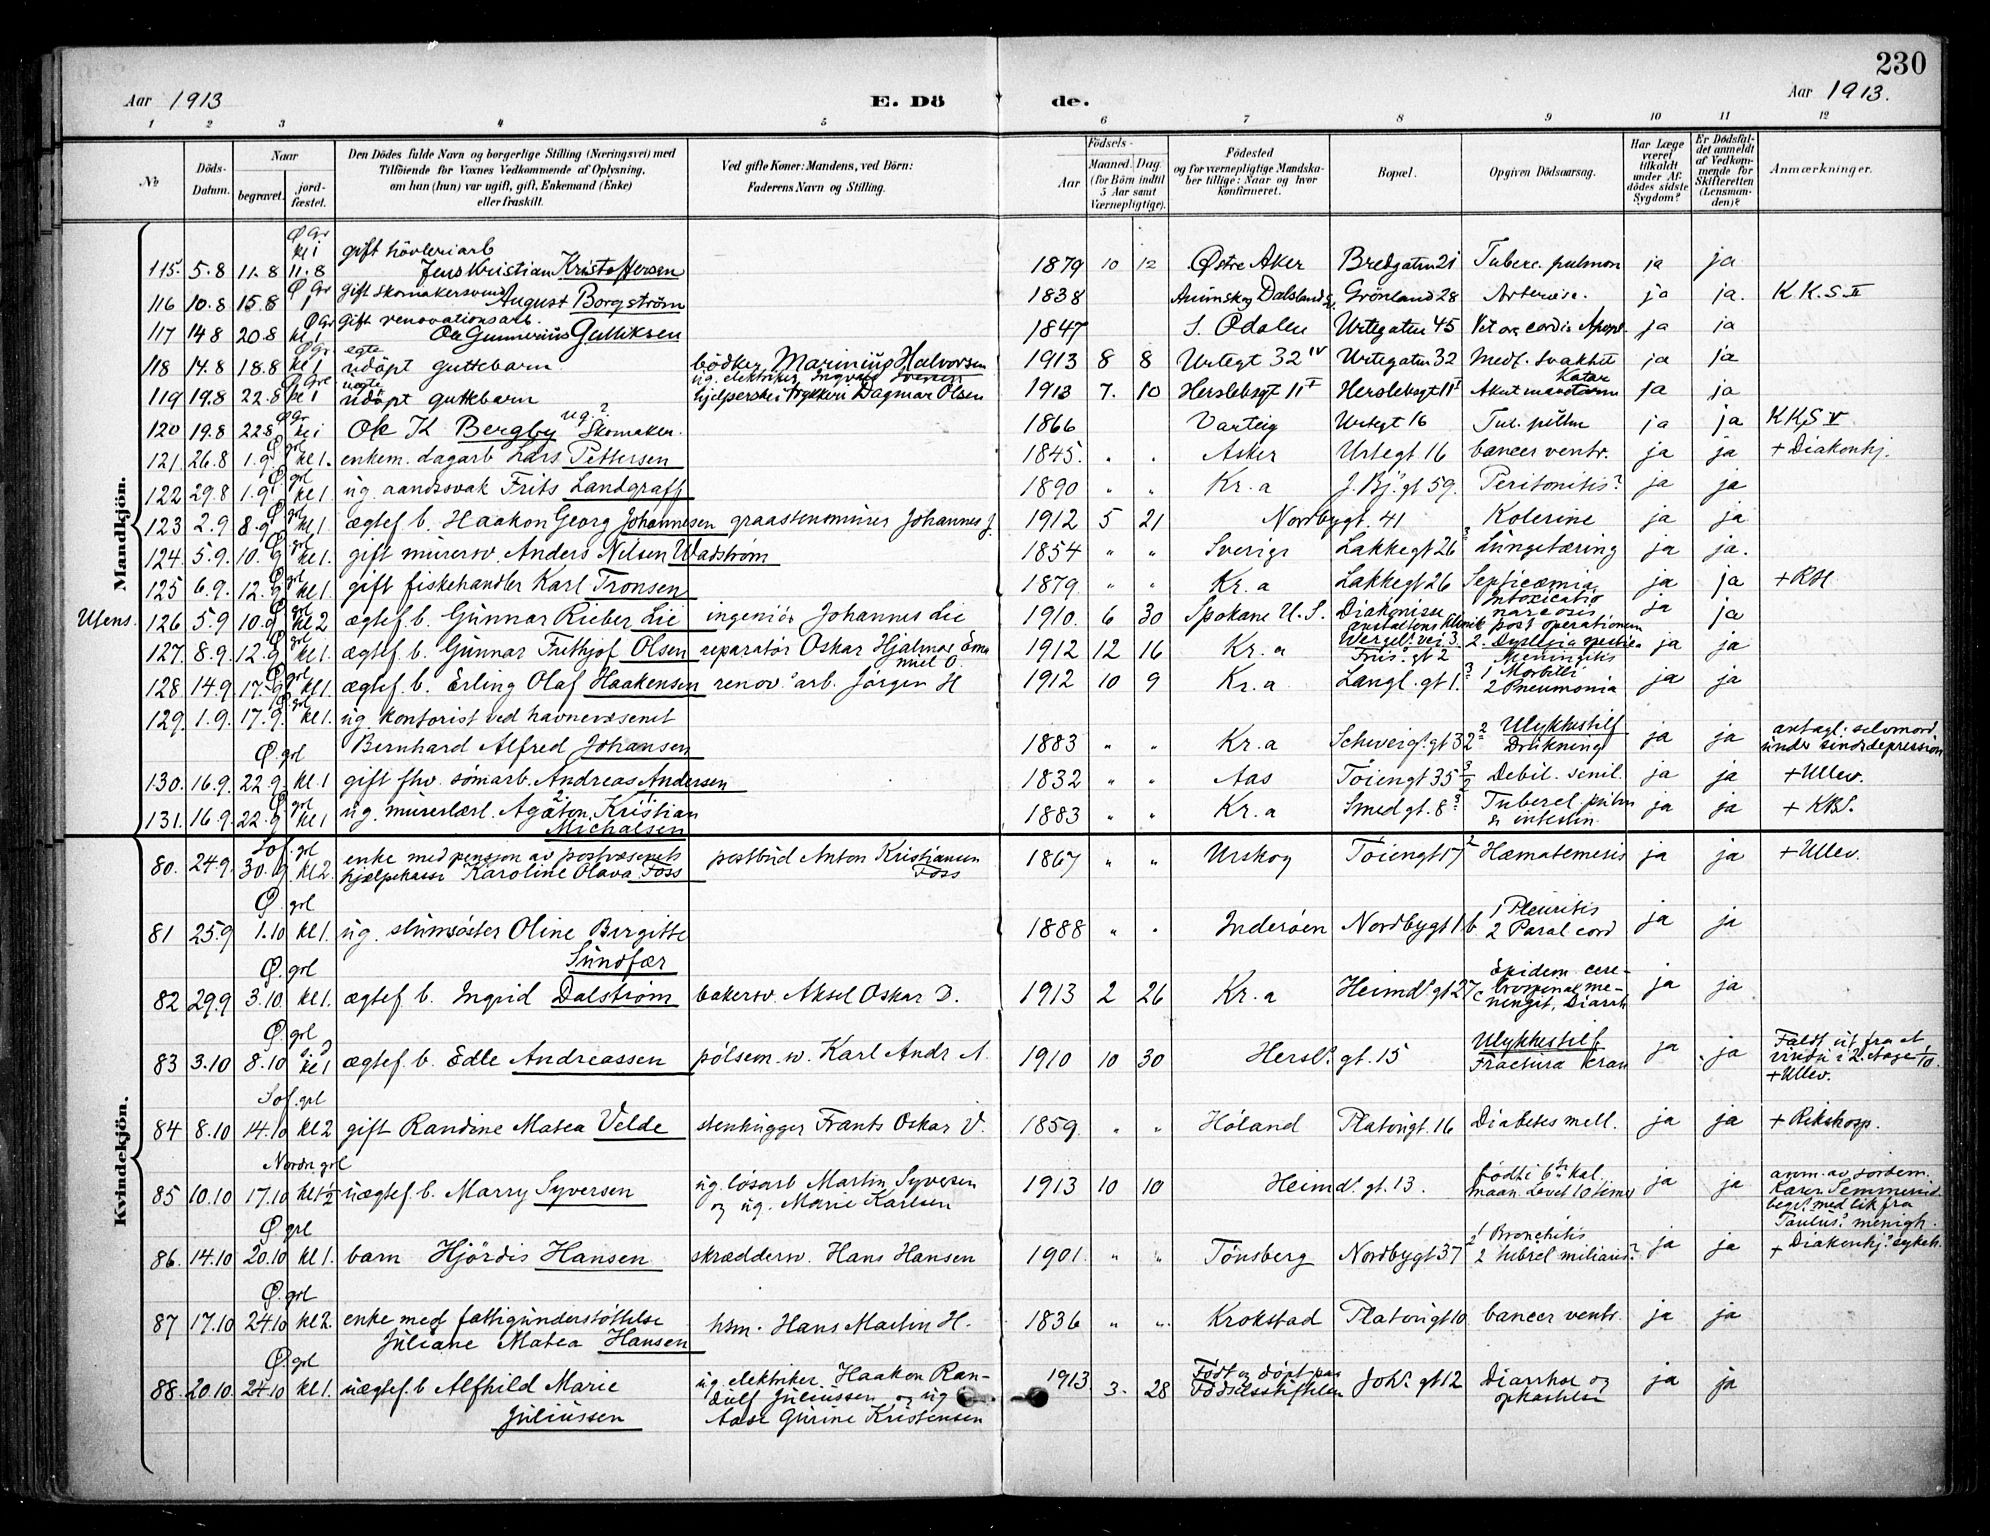 230
Aar 1913
E. Dö
de.
Aar 1913.
1 2 3 4 5 6 7 8 9 10 11 12
No
Döds-Datum.
Naar
begravet.
jord-fæstet.
Den Dödes fulde Navn og borgerlige Stilling (Næringsvei) med
Tilföiende for Voxnes Vedkommende af Oplysning,
om han (hun) var ugift, gift, Enkemand (Enke)
eller fraskilt.
Ved gifte Koner: Mandens, ved Börn:
Faderens Navn og Stilling.
Födsels-
Aar
Maaned. Dag
(for Börn indtil
5 Aar samt
Værnepligtige).
Födested
og for værnepligtige Mandska-
ber tillige: Naar og hvor
konfirmeret.
Bopæl.
Opgiven Dödsaarsag.
Har Læge
været
tilkaldt
under Af-
dödes sidste
Sygdom?
Er Dödsfal-
det anmeldt
af Vedkom-
mende for
Skifteretten
(Lensman-
den)?
Anmærkninger.
Mandkjön.
Ø Gr
kl 1 gift høvleriarb
115. 5.8 11.8 11.8 Jens Kristian Kristoffersen 1879 10 12 Østre Aker Bredgatm 21 Tuberc. pulmon ja ja
Ø Gr gift skomakersvend
116 10.8 15.8 1 August Borgstrøm 1838 Animskog Dalsland Grønland 28 ja ja. K.K.S. II
Ø Gr gift renovationsarb.
117 14.8 20.8 kl 1 Ole Gunnerius Gulliksen 1847 S. Odalen Urtegaten 45 Vit. org. cordis Apopl. ja ja
Ø Gr egte
118 14.8 18.8 kl 1 udöpt guttebarn bödker Marinius Halvorsen 1913 8 8 Urtegt 32 IV Urtegatm 32 Medf. svakhet ja ja
Ø Gr uegte ug. elektriker Ingvald Iversen
119 19.8 22.8 kl 1 udöpt guttebarn hjelperske i trykkeri Dagmar Olsen 1913 7. 10 Herslebsgt 11 I Herslebsgt 11 I Akut mavetarm Katar ja ja
Ø Gr
120 19.8 22.8 kl 1 Ole K Bergby ug.? Skomaker. 1866 Varteig Urtegt 16 Tub. pulm ja ja KKS V
Ø. grl
121. 26.8 1.9. kl 1. enkem. dagarb Lars Pettersen 1845. " " Asker Urtegt 16 Cancer ventr. ja ja + Diakonhj.
Ø grl
122 29.8 1.9. kl 1 ug. aandssvak Frits Landgraff 1890 " " Kr.a J. Bj. gt 59. Peritonitis? ja ja
Ø grl
123 2.9. 8.9. kl 1. ægtef b. Haakon Georg Johannesen graastensminer Johannes J. 1912 5 21 Nordbygt. 41 Kolerine ja ja
Ø grl
124. 5.9. 10.9. kl 1. gift murersv. Anders Nilsen Wadstrøm 1854 " " Sverige Lakkegt 26 Lungetæring ja ja.
Ø grl
125 6.9. 12.9 kl 1. gift fiskehandler Karl Tronsen 1879. " " Kr.a Lakkegt 26 Septicæmia ja ja + RH.
Ø grl
Utens. 126 5.9 10.9 kl 2 ægtef b. Gunnar Rieber Lie ingeniør Johannes Lie 1910. 6 30 Spokane U.S. Diakonisseanstaltens klinik Intoxicatio narcosis post operationem ja ja
Ø grl
127. 8.9. 12.9 kl 1. ægtef b. Gunnar Frithjof Olsen reparatør Oskar Hjalmar Emanuel O. 1912 12 16 Kr.a Wergel. vei 3. Friis' gt 2 2. Meningitis ja ja
Ø grl
128 14.9. 17.9. kl 1. ægtef b. Erling Olaf Haakensen renov. arb. Jörgen H 1912 10 9 Kr.a Langl. gt 1. 1 Morbilli 2 Pneumonia ja ja
Ø. grl
129. 1.9. 17.9. kl 1. ug. kontorist ved havnevæsenet
Ø. grl Bernhard Alfred Johansen 1883 " " Kr.a Schweigs gt 32 Ulykkestilf Drukning ja ja antagl: selvmord under sindsdepression
130. 16.9. 22.9. kl 1 gift fhv. sömarb. Andreas Andersen 1832 " " Aas Toiengt 35 Debil. senil. ja ja + Ullev.
Ø grl
131. 16.9. 22.9 kl 1 ug. murerlærl. Agaton Kristian Michalsen 1883 " " Kr.a Smedgt. 8 Tubercl. pulm & intestin ja ja + KBS.
Kvindekjön.
Sof. grl
80. 24.9. 30.9 kl 2. enke med pensjon av postvæsenets hjælpekasse Karoline Olava Foss postbud Anton Kristiansen Foss 1867 " " Urskog Toiengt 17 Hæmatemesis ja ja + Ullev.
Ø. grl
81 25.9 1.10 kl 1. ug. slumsöster Oline Birgitte Sundfær 1888 " " Inderøen Nordbygt 1 b. 1 Pleuritis 2 Paral cord ja ja
Ø. grl
82 29.9 3.10 kl 1. ægtef b. Ingrid Dalstrøm bakersv. Aksel Oskar D. 1913 2 26 Kr.a Heimd. gt 27 c Epidem cerebrospinal meningit, Diarrh ja ja
Ø. grl
83 3.10 8.10 kl 1 ægtef b. Edle Andreassen pölsem. sv. Karl Andr A. 1910 10 30 Hersl. gt. 15 Ulykkestilf Fractura kran ja ja Faldt ut fra et vindu i 2. etage 1/10. + Ullev.
Sof. grl
84 8.10 14.10 kl 2 gift Randine Matea Velde stenhugger Frants Oskar V. 1859. " " Höland Platousgt. 16 Diabetes mell. ja ja + Rikshosp.
Nordre grl
85 10.10 17.10 kl 1½ uægtef b. Marry Syversen ug. løsarb Martin Syversen og ug. Marie Karlsen 1913 10 10 Heimd. gt. 13. Født i 6te kal. maan. Levet 10 timer ja ja anm. av jordem. Karen Semmerud beg. med lik fra Paulus' menigh.
Ø grl
86. 14.10 20.10 kl 1. barn Hjördis Hansen skrædderw. Hans Hansen 1901. " " Tønsberg Nordbygt 37 1 Bronchitis 2 tubrcl miliaris? ja ja + Diakonhj. sykeh.
Ø. grl
87 17.10 24.10 kl 2. enke med fattigunderstöttelse Juliane Matea Hansen hsm. Hans Martin H. 1836 " " Krokstad Platousgt 10 Cancer ventr. ja ja
Ø. grl
88. 20.10. 24.10 kl 1. uægtef. b Alfhild Marie Juliussen ug. elektriker Haakon Randulf Juliussen og ug Aase Gurine Kristensen 1913 3. 28 Födt og döpt paa Födselsstiftelsen Joh. gt 12 Diarrhoe og opkastelse ja ja